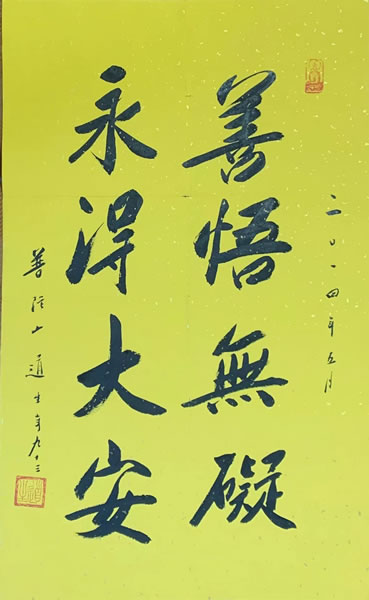 二〇一四年五月
善悟無礙
永得大安
善隱山道生年九十三